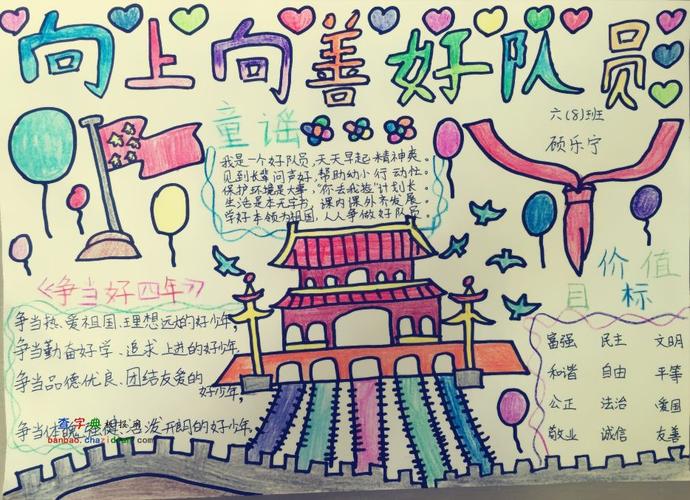 向上向善好队员
六(8)班
硕乐宁
童谣
我是一个好队员,天天早起精神爽。
见到长辈问声好,帮助幼小行动忙。
保护环境是大事,"你丢我捡"计划长
生活是本无字书,课内课外齐发展。
学好本领为祖国,人人争做好队员。
价值
目标
富强 民主 文明
和谐 自由 平等
公正 法治 爱国
敬业 诚信 友善
《争当好四年》
争当热爱祖国、理想远大的好少年,
争当勤奋好学、追求上进的好少年
争当品德优良、团结友爱的
好少年,
争当体魄强健、活泼开朗的好少年
查字典
banbao.chazidian.com